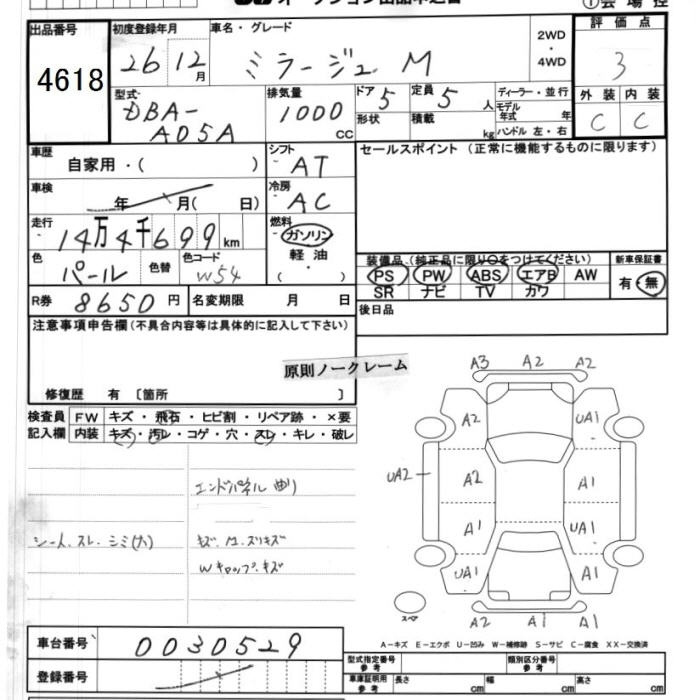 出品番号 4618
初度登録年月 26 12月
車名・グレード ミラージュ M
2WD・4WD
評価点 3
型式 DBA-A05A
排気量 1000 CC
ドア 5
定員 5人
形状
積載 kg
ディーラー・並行
モデル年式 年
ハンドル 左・右
外装 内装
C C
車歴 自家用・( )
シフト AT
セールスポイント (正常に機能するものに限ります)
車検 年 月( 日)
冷房 AC
走行 14万4千699km
燃料 ガソリン
軽油
・
( )
色 パール 色替 色コード W54
装備品 (純正品に限り○をつけてください) 新車保証書
PS PW ABS エアB AW 有・無
SR ナビ TV カワ
R券 8650円 名変期限 月 日
後日品
注意事項申告欄(不具合内容等は具体的に記入して下さい)
原則ノークレーム
修復歴 有 〔箇所 〕
検査員記入欄
FW キズ・飛石・ヒビ割・リペア跡・×要
内装 キズ・汚レ・コゲ・穴・スレ・キレ・破レ
エンドパネル曲り
シート.スレ.シミ(大)
Wキャップ.キズ
A3 A2 A2
A2 UA1
UA2 A2 A1
A1 UA1
UA1 A1
スペア
A2 A1 A1
A-キズ E-エクボ U-凹み W-補修跡 S-サビ C-腐食 XX-交換済
車台番号 0030529
登録番号
型式指定番号参考 類別区分番号参考
車庫証明用参考 長さ cm 幅 cm 高さ cm